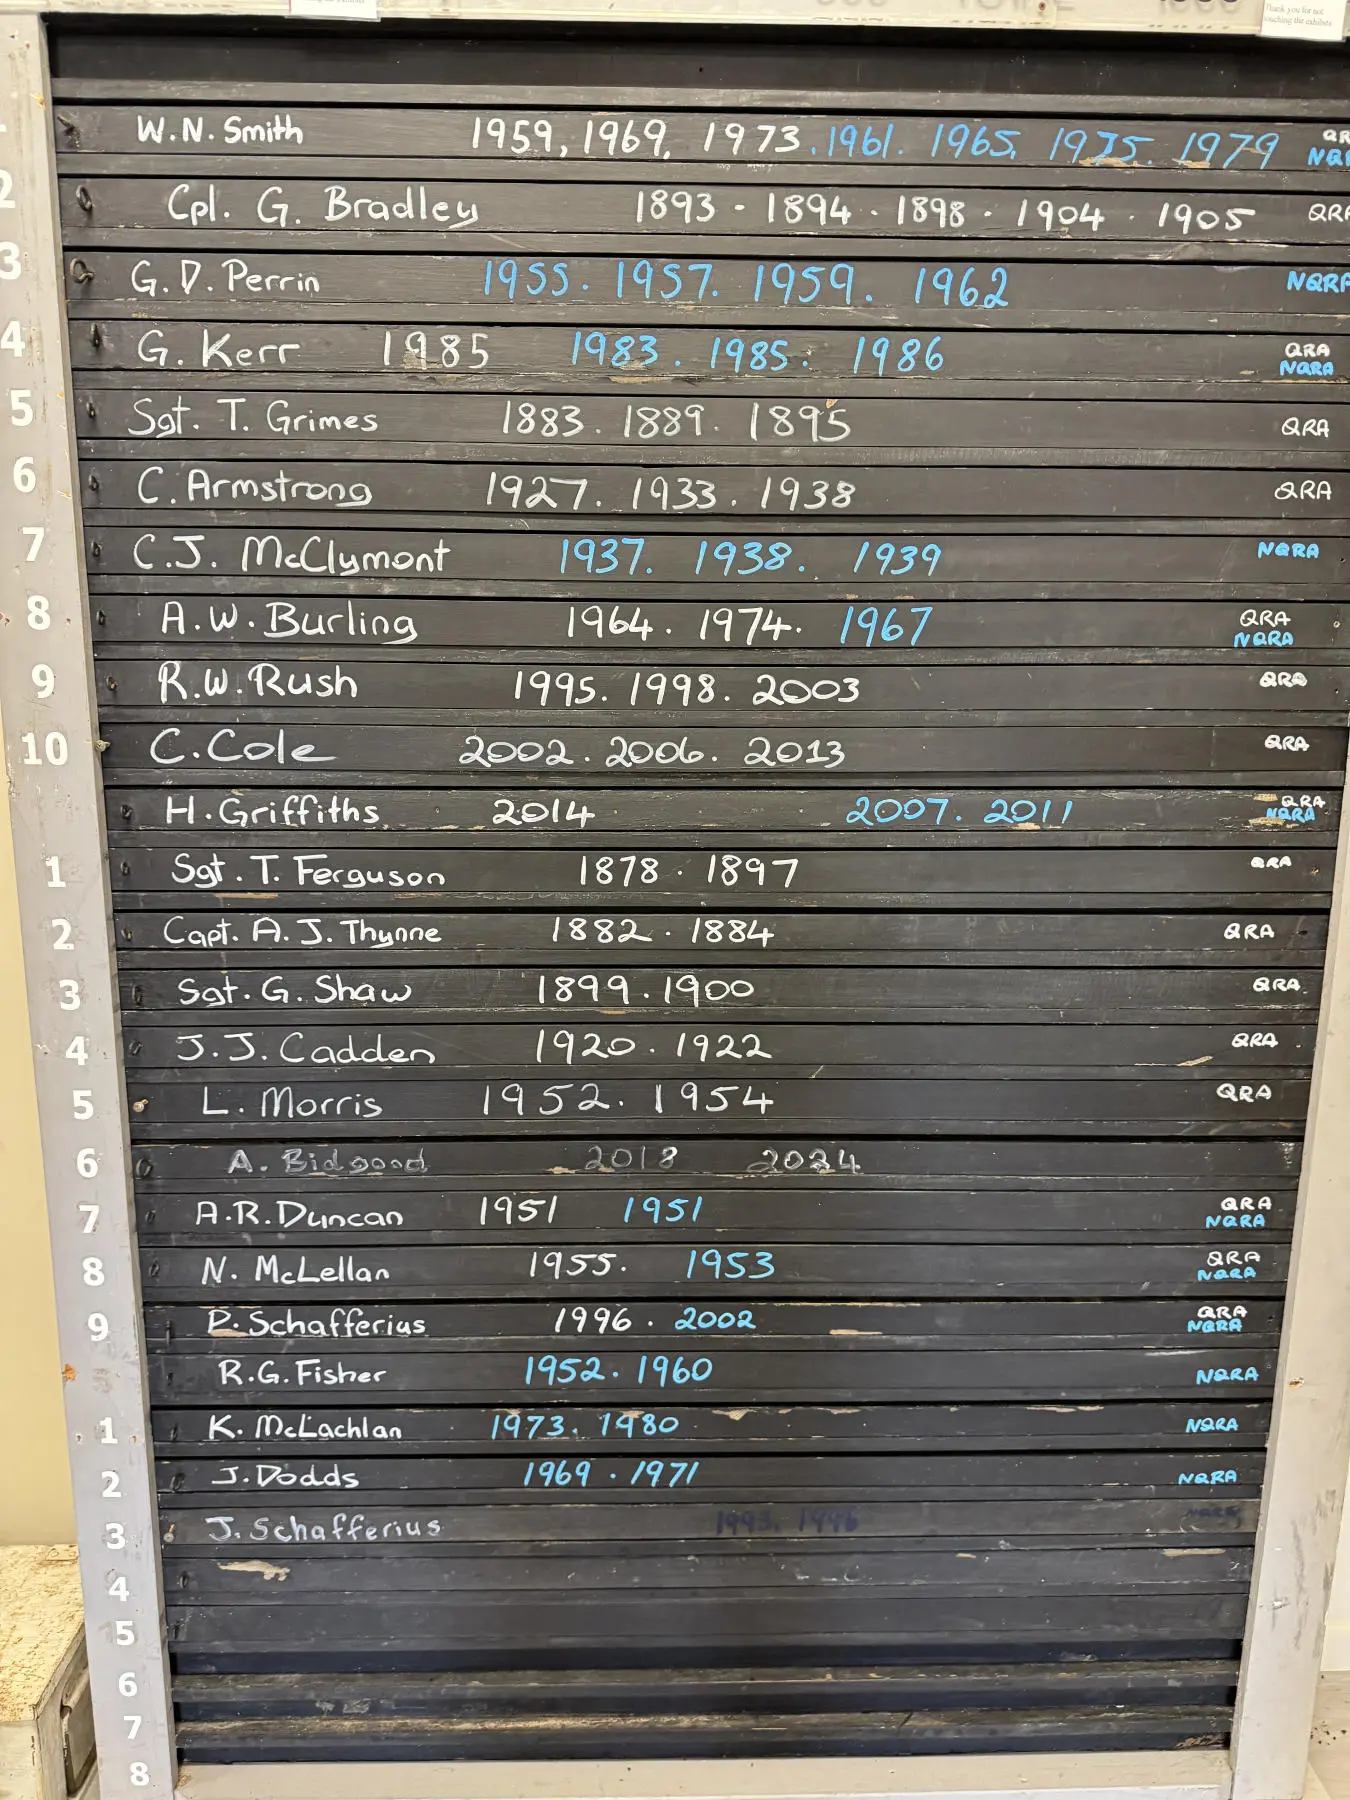 Thank you for not
touching the exhibits
W.N. Smith 1959, 1969, 1973. 1961. 1965. 1975. 1979 QRA
NQRA
2 Cpl. G. Bradley 1893 - 1894 - 1898 - 1904 . 1905 QRA
3 G.D. Perrin 1955. 1957. 1959. 1962 NQRA
4 G. Kerr 1985 1983. 1985. 1986 QRA
NQRA
5 Sgt. T. Grimes 1883. 1889. 1895 QRA
6 C. Armstrong 1927. 1933. 1938 QRA
7 C.J. McClymont 1937. 1938. 1939 NQRA
8 A.W. Burling 1964. 1974. 1967 QRA
NQRA
9 R.W. Rush 1995. 1998. 2003 QRA
10 C. Cole 2002. 2006. 2013 QRA
H. Griffiths 2014 2007. 2011 QRA
NQRA
1 Sgt. T. Ferguson 1878 . 1897 QRA
2 Capt. A. J. Thynne 1882 . 1884 QRA
3 Sgt. G. Shaw 1899. 1900 QRA
4 J.J. Cadden 1920 . 1922 QRA
5 L. Morris 1952. 1954 QRA
6 A. Bidgood 2018 2024
7 A.R. Duncan 1951 1951 QRA
NQRA
8 N. McLellan 1955. 1953 QRA
NQRA
9 P. Schafferius 1996 . 2002 QRA
NQRA
R.G. Fisher 1952. 1960 NQRA
1 K. McLachlan 1973. 1980 NQRA
2 J. Dodds 1969 . 1971 NQRA
3 J. Schafferius 1993. 1996 NQRA
4
5
6
7
8